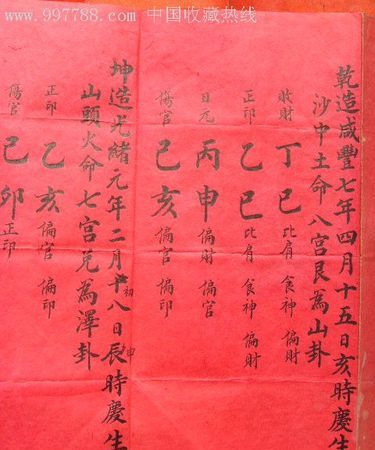 www.997788.com 中国收藏热线
乾造咸豐七年四月十五日亥時慶生
沙中土命八宫艮為山卦
敗財 丁巳 比肩 食神 偏財
正印 乙巳 比肩 食神 偏財
日元 丙申 偏財 偏官
傷官 己亥 偏官 偏印
坤造光緒元年二月十八日辰時慶生
初
申
山頭火命七宫兑為澤卦
正印 乙亥 偏官 偏印
傷官 己卯 正印